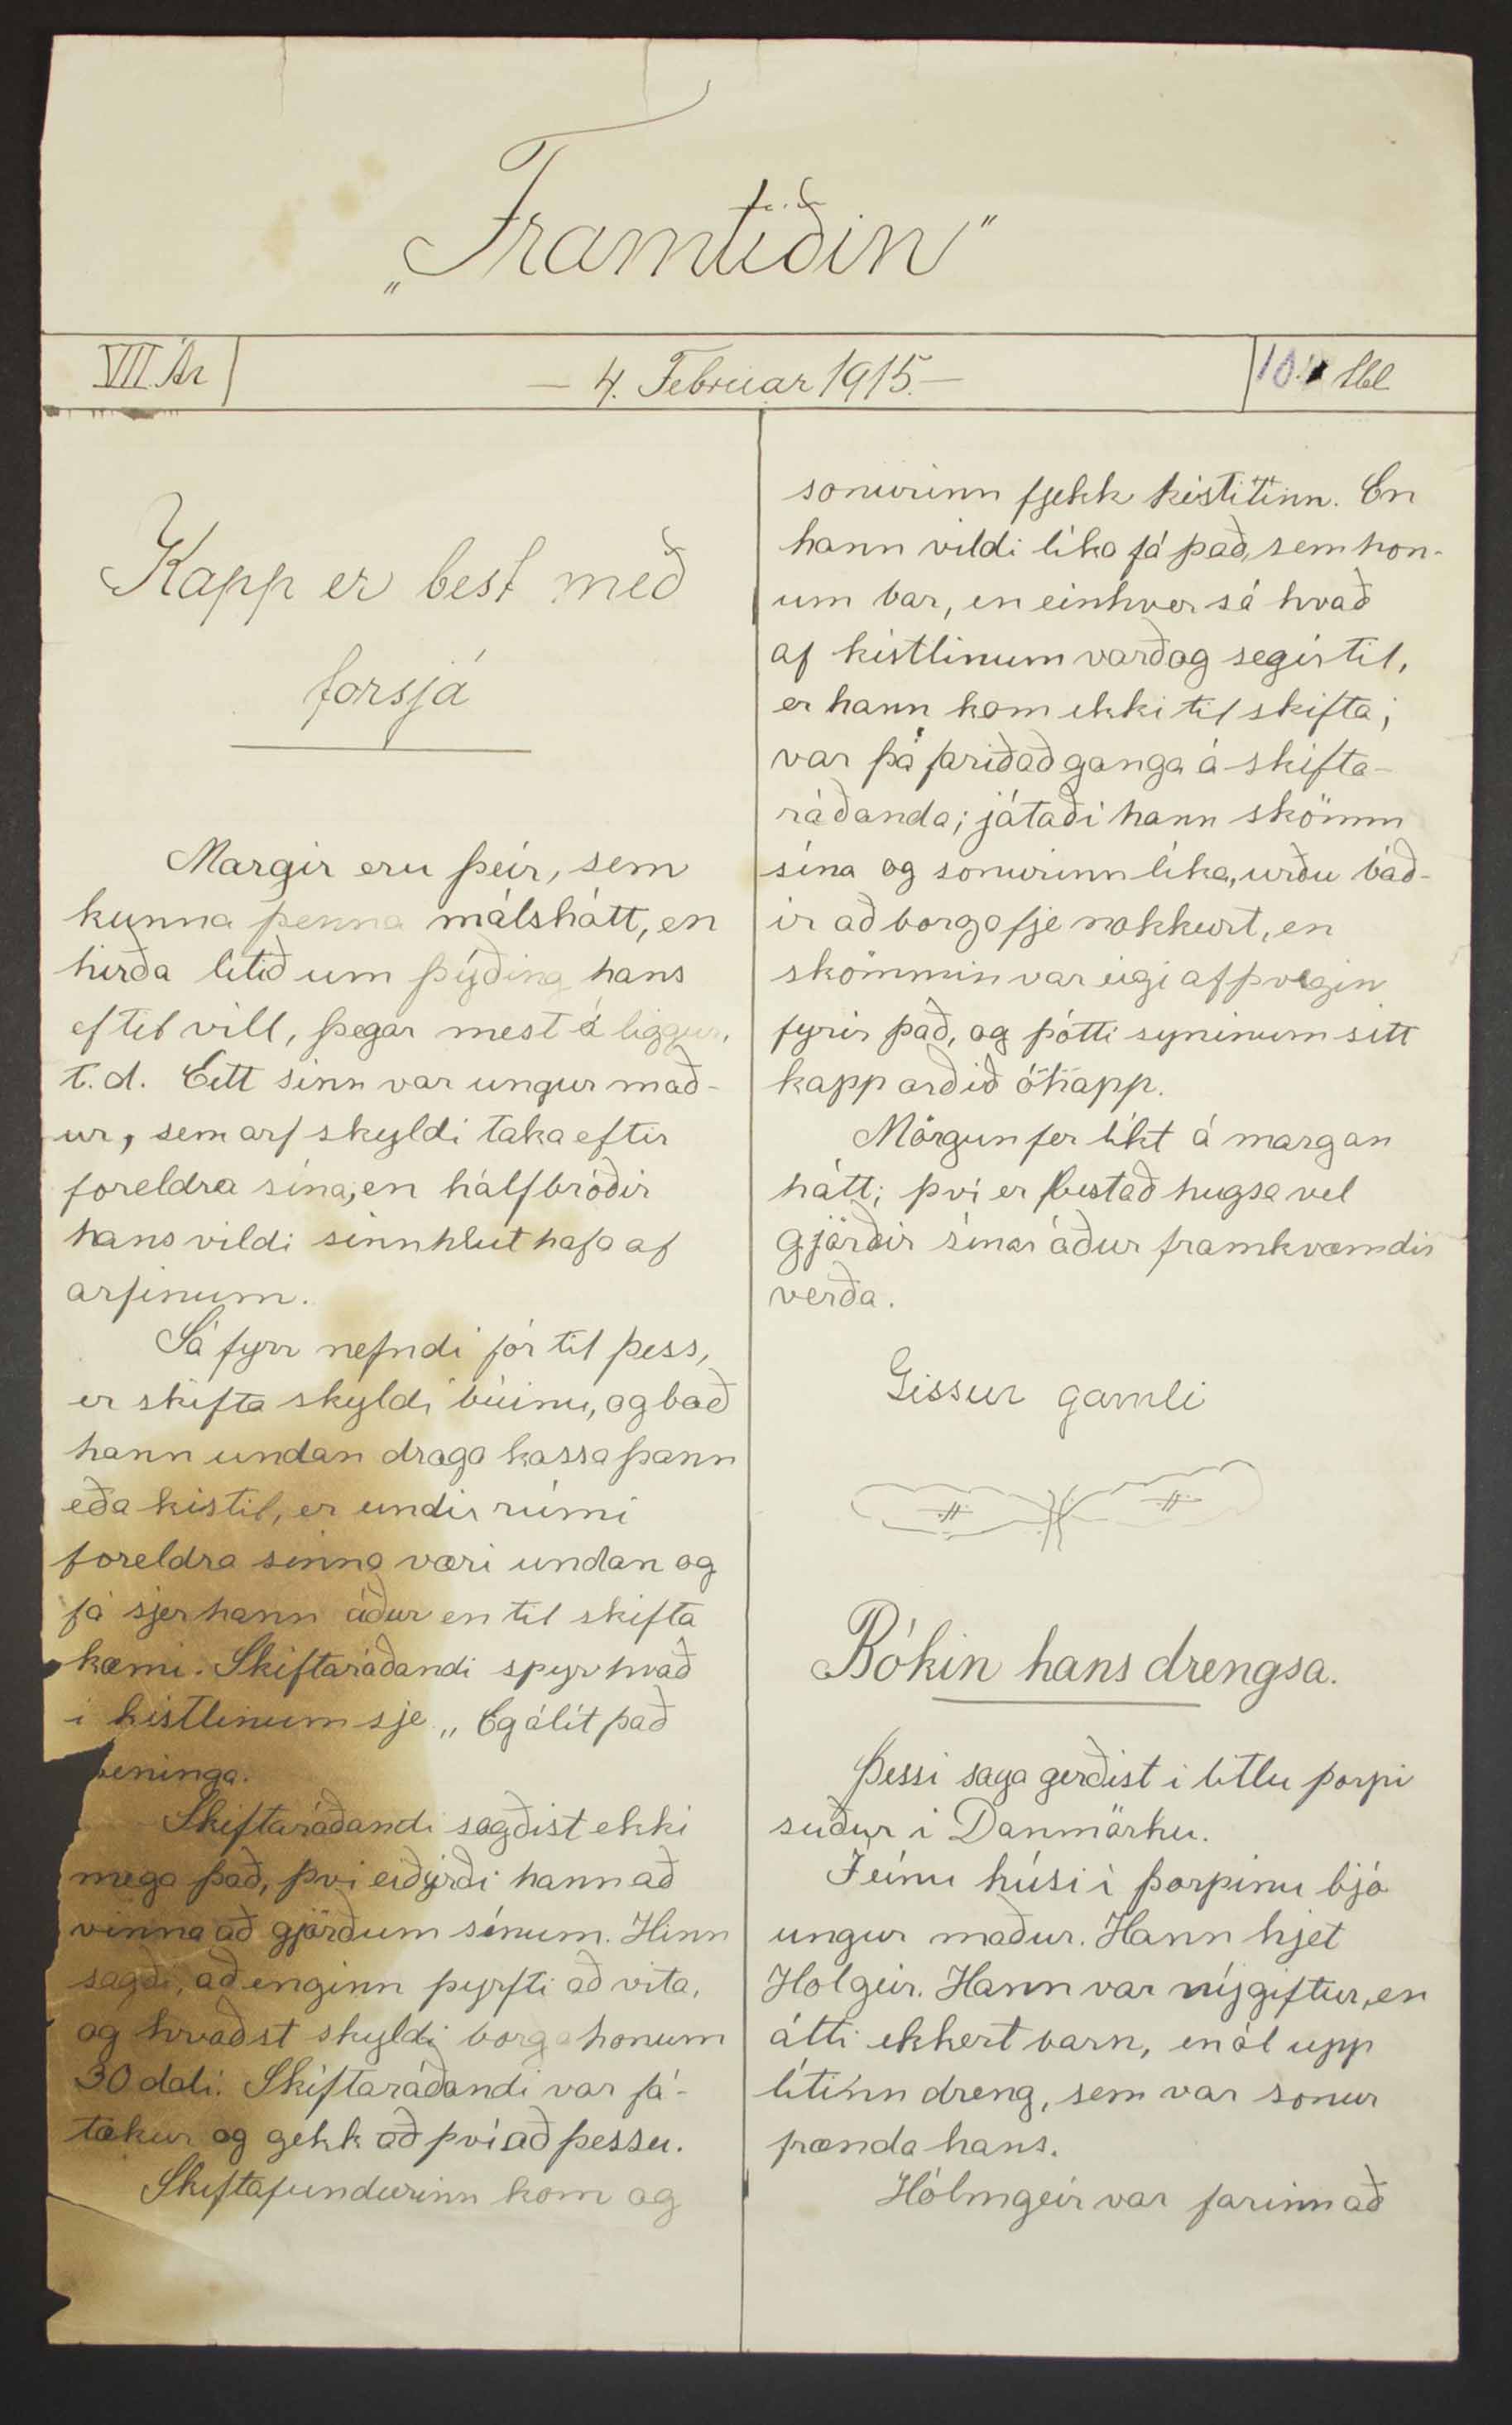 „Framtíðin"
VII. Ár
— 4. Februar 1915. —
10. tbl
Kapp er best með
forsjá
Margir eru þeir, sem
kunna þenna málshátt, en
hirða litið um þýðing hans
eftil vill, þegar mest á liggur,
t.d. Eitt sinn var ungur mað-
ur, sem arf skyldi taka eftir
foreldra sína, en hálfbróðir
hans vildi sinn hlut hafa af
arfinum.
Sá fyrr nefndi fór til þess,
er skifta skyldi búinu, og bað
hann undan draga kassa þann
eða kistil, er undir rúmi
foreldra sinna væri undan og
fá sjer hann áður en til skifta
kæmi. Skiftaráðandi spyr hvað
i kistlinum sje „Eg álít það
peninga.
Skiftaráðandi sagðist ekki
mega það, þvi eið yrði hann að
vinna að gjörðum sínum. Hinn
sagði, að enginn þyrfti að vita,
og kvaðst skyldi borga honum
30 dali. Skiftaráðandi var fá-
tækur og gekk að því að þessu.
Skiftafundurinn kom og
sonurinn fjekk kistilinn. En
hann vildi líka fá það, sem hon-
um bar, en einhver sá hvað
af kistlinum varð og segir til,
er hann kom ekki til skifta;
var þá farið að ganga á skifta-
ráðanda; játaði hann skömm
sína og sonurinn líka, urðu báð-
ir að borga fje nokkurt, en
skömmin var eigi af þvegin
fyrir það, og þótti syninum sitt
kapp orðið óhapp.
Mörgun fer líkt á margan
hátt; því er best að hugsa vel
gjörðir sínar áður framkvæmdir
verða.
Gissur gamli
Bókin hans drengsa.
Þessi saga gerðist i litlu þorpi
suður i Danmörku.
Í einu húsi i þorpinu bjó
ungur maður. Hann hjet
Holgeir. Hann var nýgiftur, en
átti ekkert barn, en ól upp
lítinn dreng, sem var sonur
frænda hans.
Hólmgeir var farinn að